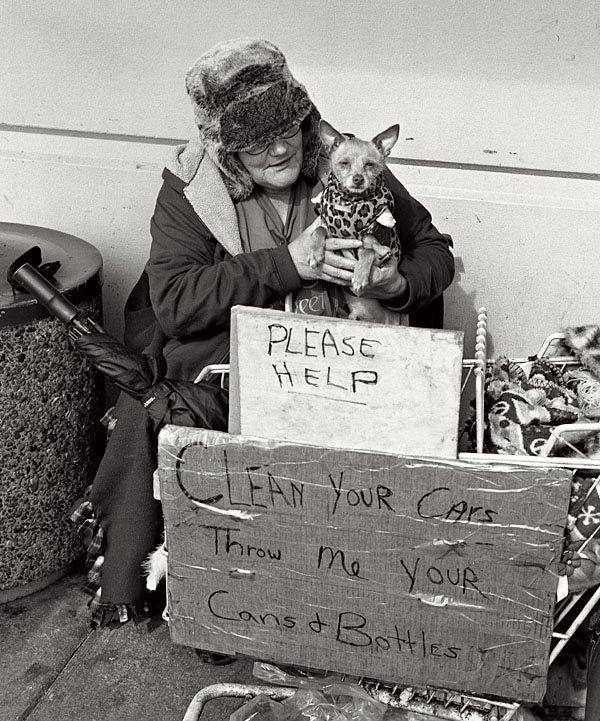 PLEASE
HELP
CLEAN YOUR CARS
Throw Me YOUR
Cans & Bottles